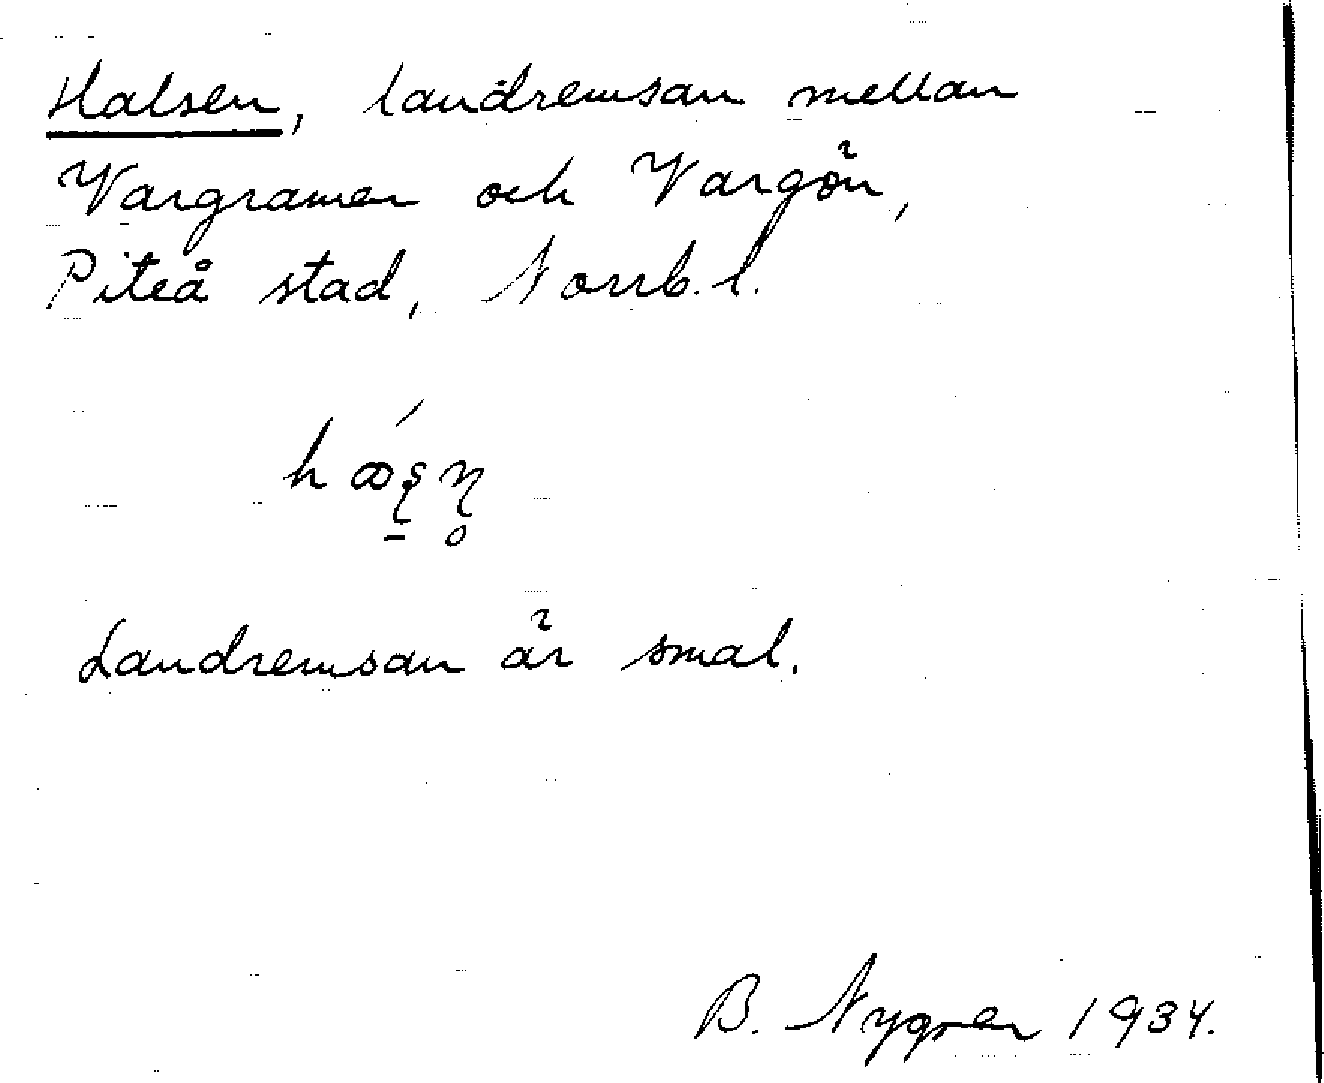 Halsen, landremsan mellan
Vargramen och Vargön,
Piteå stad, Norrb. l.
Landremsan är smal.
B. Nygren 1934.